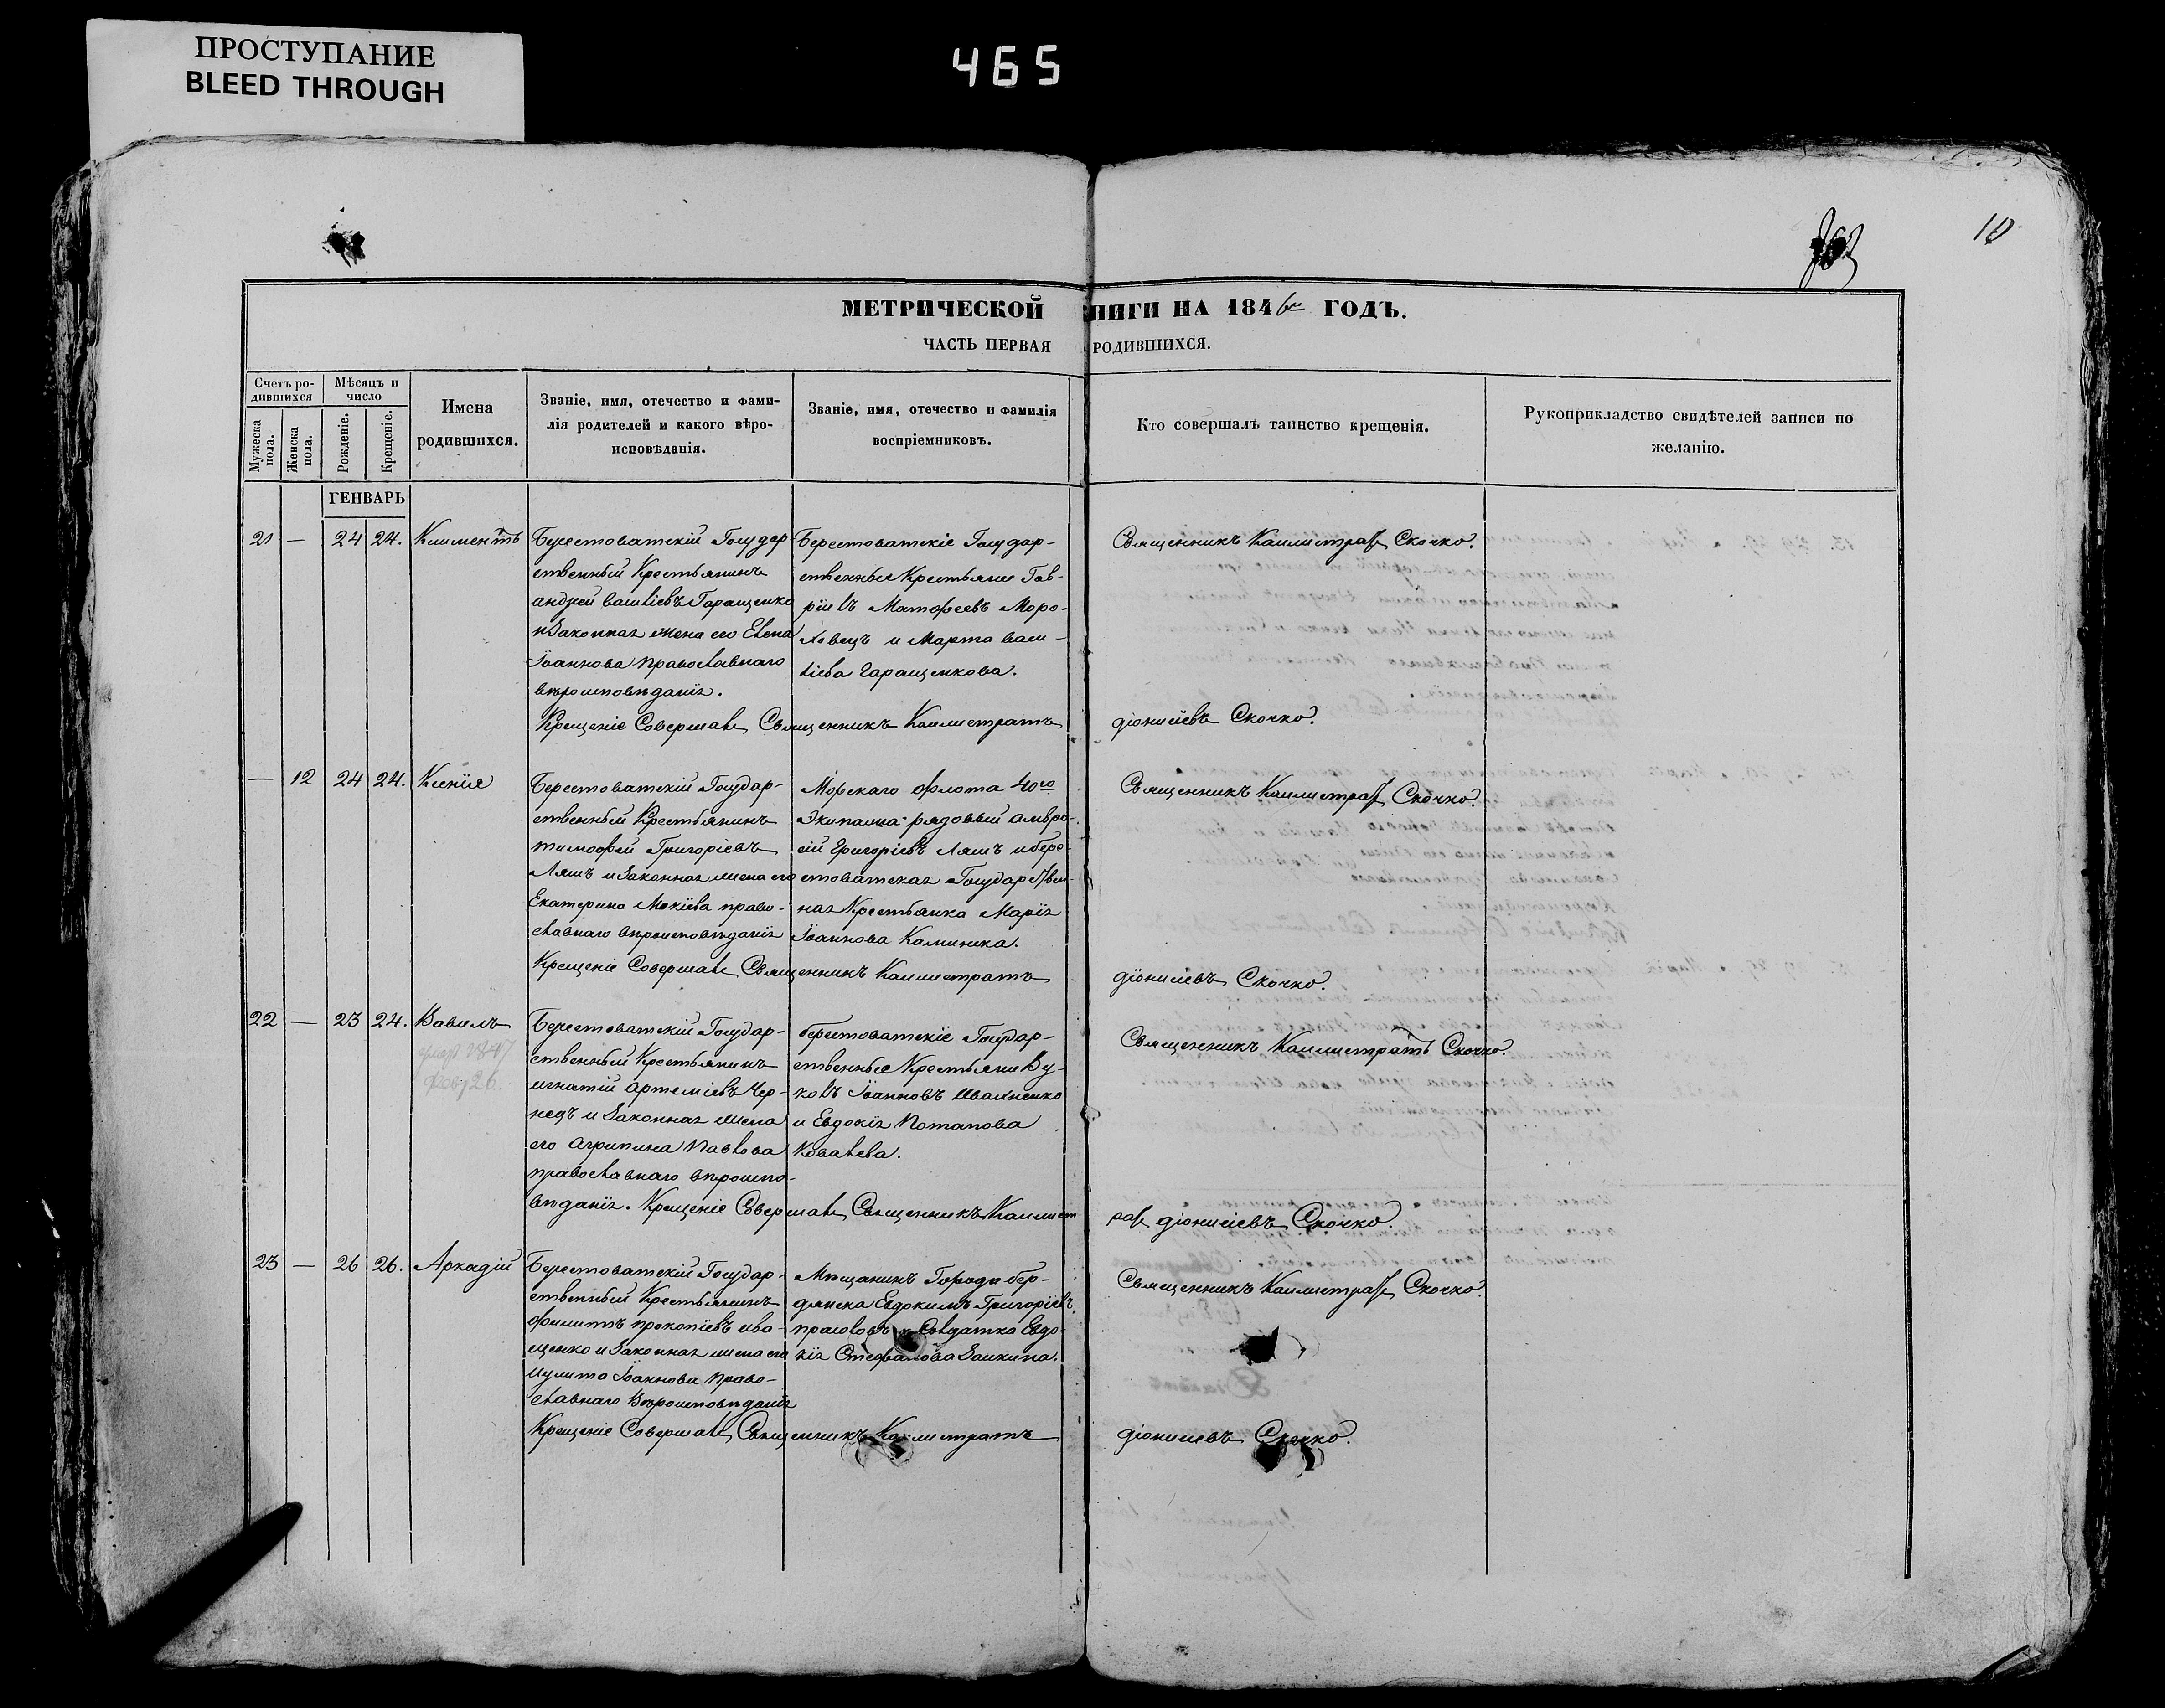 ПРОСТУПАНИЕ
BLEED THROUGH
465
10
МЕТРИЧЕСКОЙ КНИГИ НА 1846й ГОДЪ.
ЧАСТЬ ПЕРВАЯ РОДИВШИХСЯ.
Счетъ родившихся
Мужеска пола.
Женска пола.
Мѣсяцъ и число
Рожденіе.
Крещеніе.
Имена родившихся.
Званіе, имя, отечество и фами-
лія родителей и какого вѣро-
исповѣданія.
Званіе, имя, отечество и фамилія
воспріемниковъ.
Кто совершалъ таинство крещенія.
Рукоприкладство свидѣтелей записи по
желанію.
ГЕНВАРЬ
21 — 24 24. Климентъ
Берестоватскій Государ-
ственный Крестьянинъ
андрей василіевъ Гаращенко
и Законная жена его Елена
Іоаннова православнаго
вѣроисповѣданія.
Берестоватскіе Государ-
ственные Крестьяне Гав-
ріилъ Матфеевъ Моро-
ховецъ и Марта васи-
ліева Гаращенкова.
Священникъ Каллистратъ Скочко.
Крещеніе Совершалъ Священникъ Каллистратъ діонисіевъ Скочко.
— 12 24 24. Ксенія
Берестоватскій Государ-
ственный Крестьянинъ
тимофей Григоріевъ
Ляшъ и Законная жена его
Екатерина Мокіева право-
славнаго вѣроисповѣданія
Морскаго флота 40го
Экипажа рядовый амвро-
сій Григоріевъ Ляшъ и бере-
стоватская Государствен-
ная Крестьянка Марія
Іоаннова Калиника.
Священникъ Каллистратъ Скочко.
Крещеніе Совершалъ Священникъ Каллистратъ діонисіевъ Скочко.
22 — 23 24. Вавилъ
1847
26.
Берестоватскій Государ-
ственный Крестьянинъ
игнатій артеміевъ Чер-
нецъ и Законная жена
его агрипина Павлова
православнаго вѣроиспо-
вѣданія. Крещеніе Совершалъ Священникъ Каллист
ратъ діонисіевъ Скочко.
берестоватскіе Государ-
ственные Крестьяне Ву-
колъ Іоанновъ Ивахненко
и Евдокія Потапова
Ковалева.
Священникъ Каллистратъ Скочко.
23 — 26 26. Аркадій
Берестоватскій Государ-
ственный Крестьянинъ
филиппъ прокопіевъ ива-
щенко и Законная жена его
Іулита Іоаннова право-
славнаго Вѣроисповѣданія
Мѣщанинъ Города бер-
дянска Евдокимъ Григоріевъ
и Солдатка Евдо-
кія Стефанова Заикина.
Священникъ Каллистратъ Скочко.
Крещеніе Совершалъ Священникъ Каллистратъ діонисіевъ Скочко.